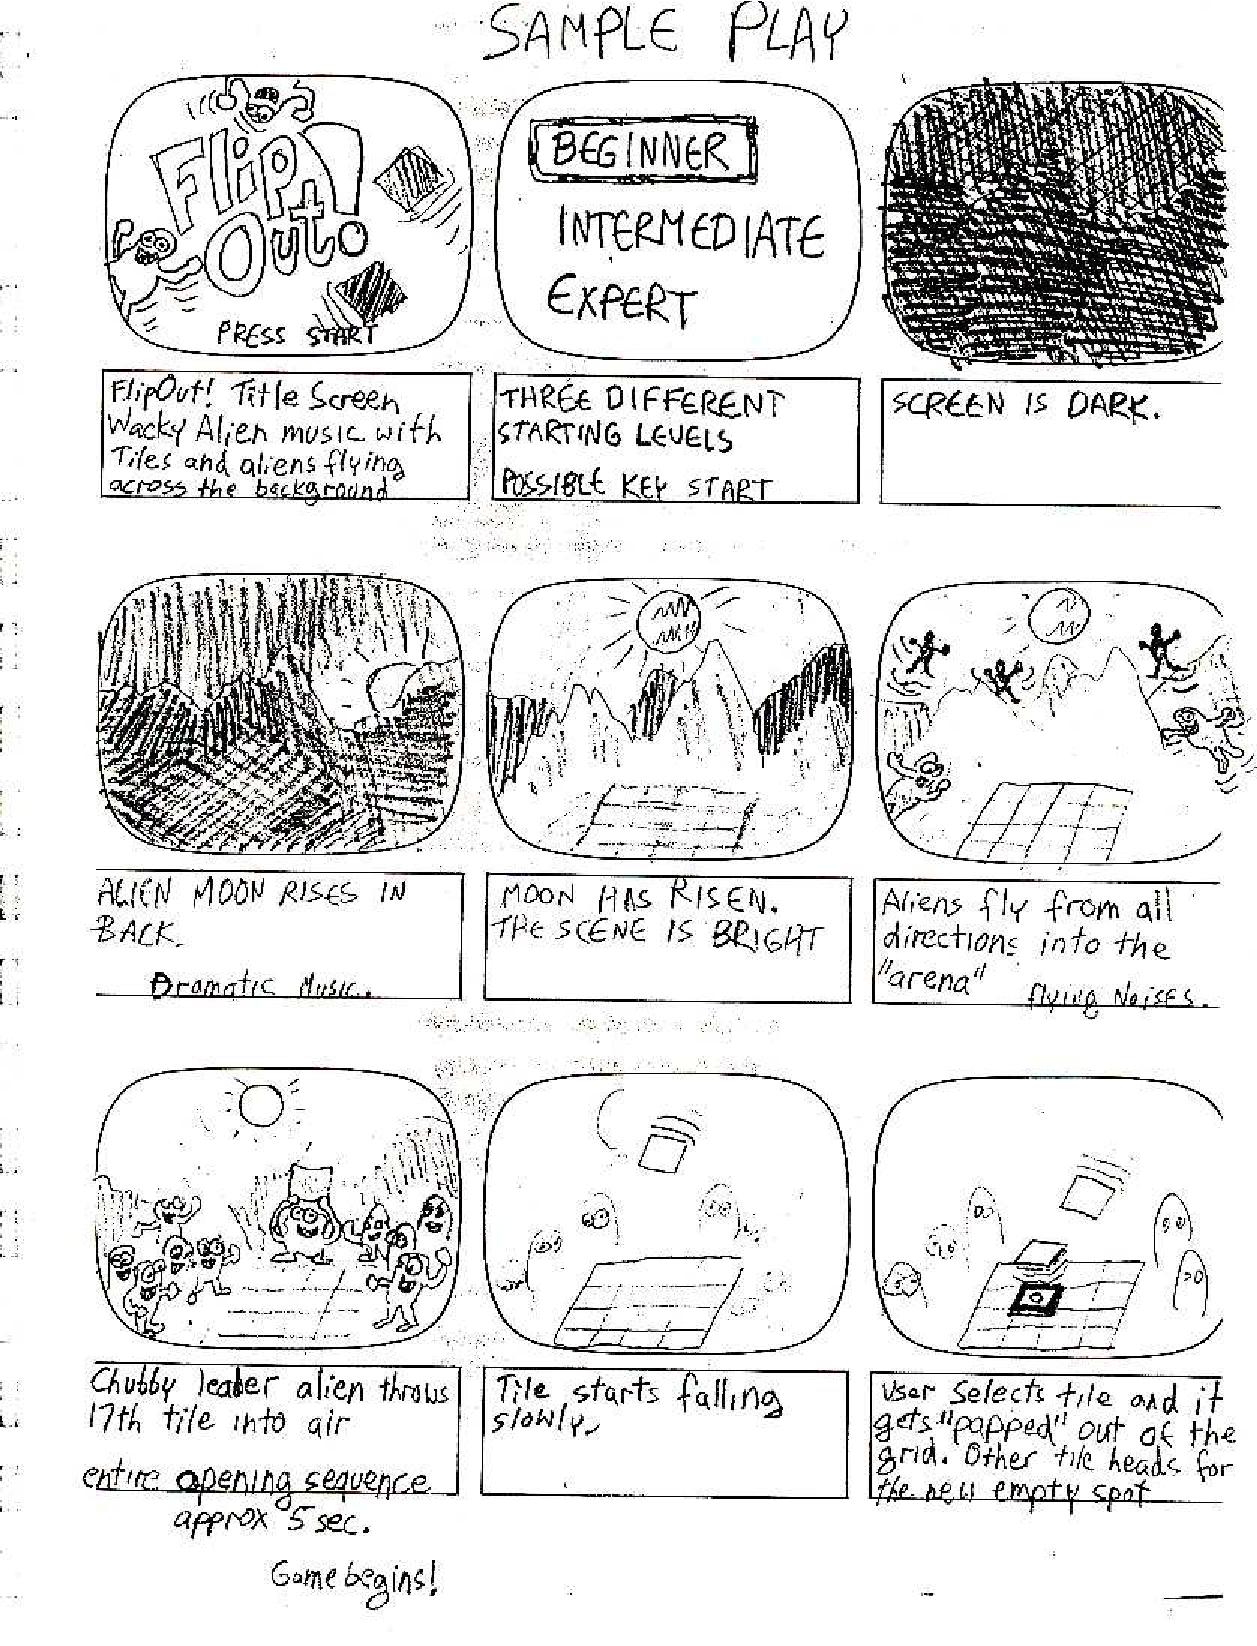 SAMPLE PLAY
Flip
Out!
PRESS START
BEGINNER
INTERMEDIATE
EXPERT
FlipOut! Title Screen
Wacky Alien music with
Tiles and aliens flying
across the background
THREE DIFFERENT
STARTING LEVELS
POSSIBLE KEY START
SCREEN IS DARK.
ALIEN MOON RISES IN
BACK.
Dramatic Music.
MOON HAS RISEN.
THE SCENE IS BRIGHT
Aliens fly from all
directions into the
"arena" flying Noises.
Chubby leader alien throws
17th tile into air
entire opening sequence
approx 5 sec.
Game begins!
Tile starts falling
slowly.
User Selects tile and it
gets "popped" out of the
grid. Other tile heads for
the new empty spot